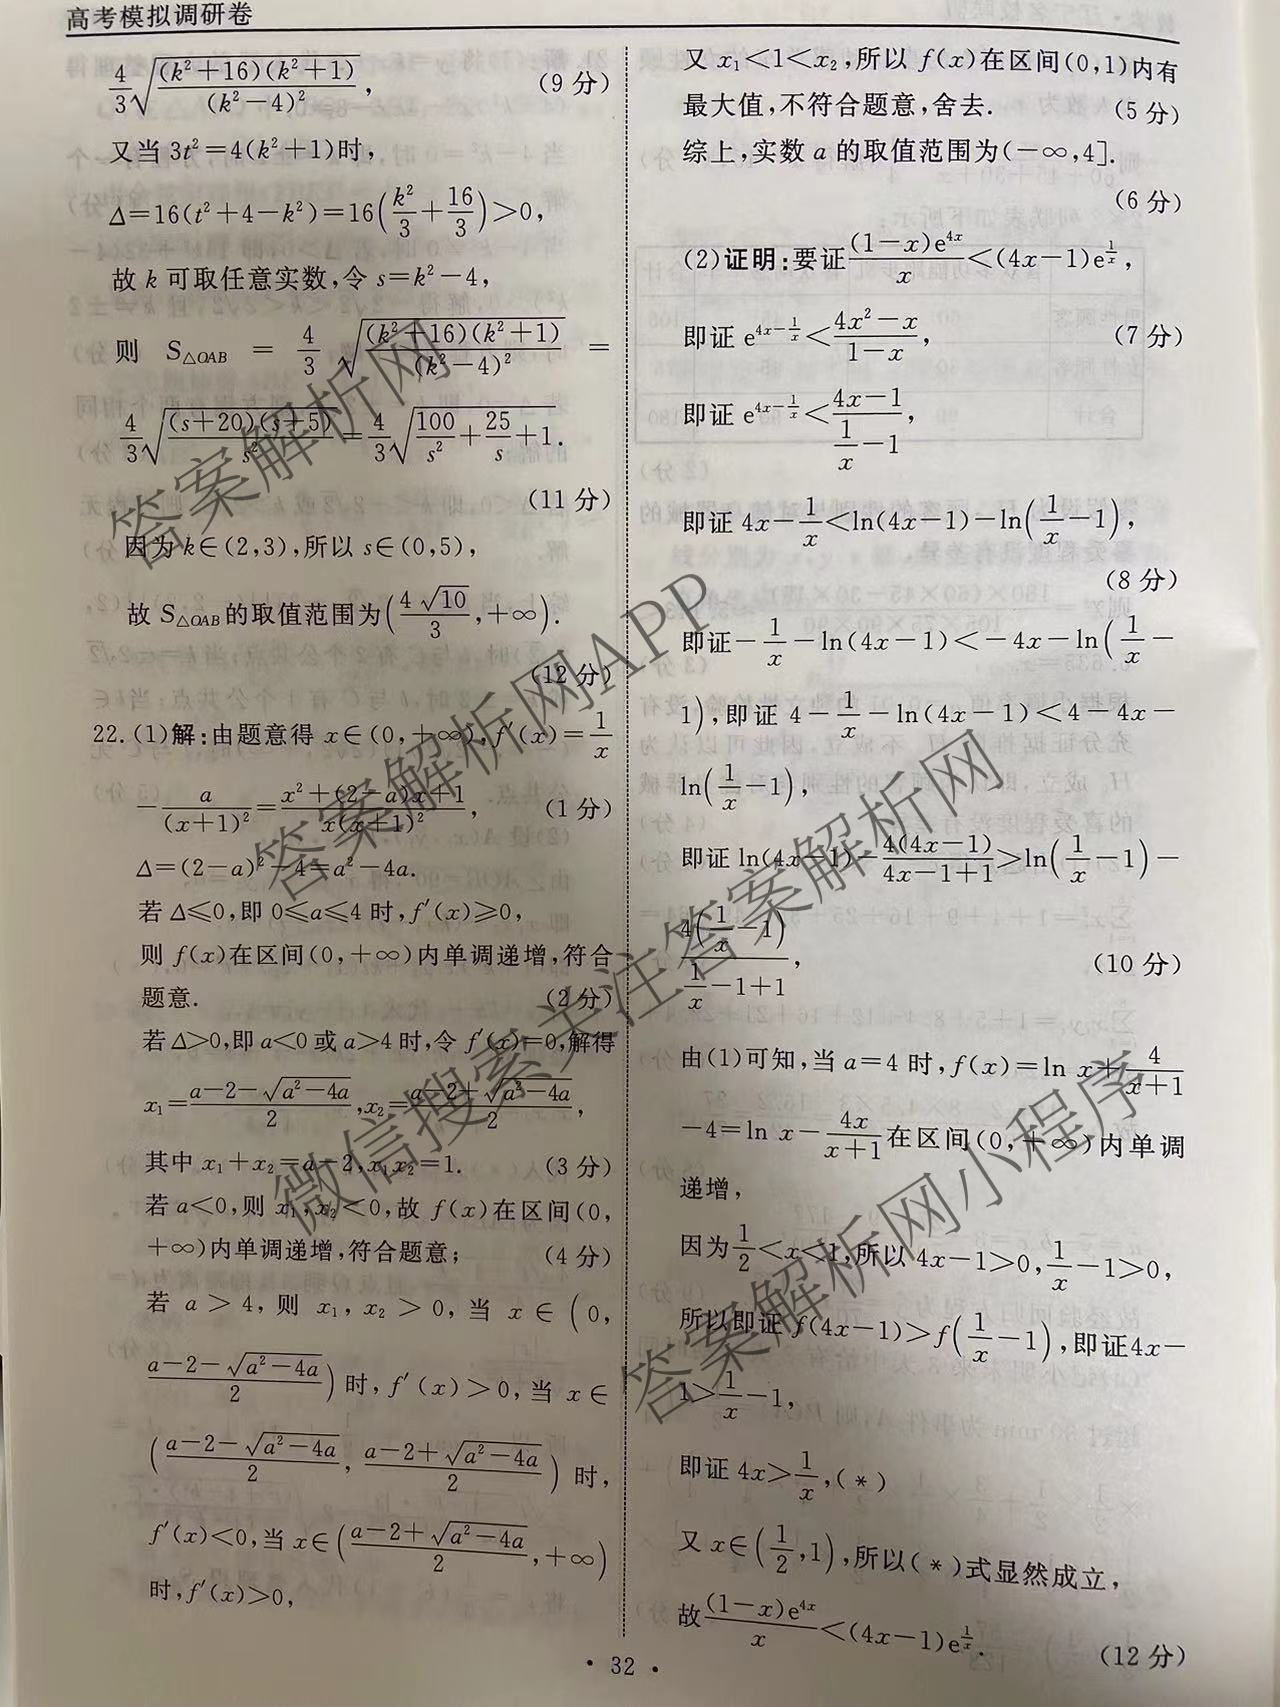 高考模拟调研卷
4/3 √((k²+16)(k²+1)/(k²-4)²), (9分)
又当 3t²=4(k²+1)时,
Δ=16(t²+4-k²)=16(k²/3+16/3)>0,
故 k 可取任意实数,令 s=k²-4,
则 S△OAB = 4/3 √((k²+16)(k²+1)/(k²-4)²) =
4/3 √((s+20)(s+5)/s²)=4/3 √(100/s²+25/s+1).
(11分)
因为 k∈(2,3),所以 s∈(0,5),
故 S△OAB的取值范围为(4√10/3,+∞).
(12分)
22.(1)解:由题意得 x∈(0,+∞),f′(x)=1/x
-a/(x+1)²=(x²+(2-a)x+1)/(x(x+1)²), (1分)
Δ=(2-a)²-4=a²-4a.
若 Δ≤0,即 0≤a≤4 时,f′(x)≥0,
则 f(x)在区间(0,+∞)内单调递增,符合
题意. (2分)
若 Δ>0,即 a<0 或 a>4 时,令 f′(x)=0,解得
x₁=(a-2-√(a²-4a))/2,x₂=(a-2+√(a²-4a))/2,
其中 x₁+x₂=a-2,x₁x₂=1. (3分)
若 a<0,则 x₁,x₂<0,故 f(x)在区间(0,
+∞)内单调递增,符合题意; (4分)
若 a>4,则 x₁,x₂>0,当 x∈(0,
(a-2-√(a²-4a))/2)时,f′(x)>0,当 x∈
((a-2-√(a²-4a))/2, (a-2+√(a²-4a))/2)时,
f′(x)<0,当 x∈((a-2+√(a²-4a))/2,+∞)
时,f′(x)>0,
又 x₁<1<x₂,所以 f(x)在区间(0,1)内有
最大值,不符合题意,舍去. (5分)
综上,实数 a 的取值范围为(-∞,4].
(6分)
(2)证明:要证(1-x)e^(4x)/x<(4x-1)e^(1/x),
即证 e^(4x-1/x)<(4x²-x)/(1-x), (7分)
即证 e^(4x-1/x)<(4x-1)/(1/x-1),
即证 4x-1/x<ln(4x-1)-ln(1/x-1),
(8分)
即证-1/x-ln(4x-1)<-4x-ln(1/x-
1),即证 4-1/x-ln(4x-1)<4-4x-
ln(1/x-1),
即证 ln(4x-1)-4(4x-1)/(4x-1+1)>ln(1/x-1)-
4(1/x-1)/(1/x-1+1), (10分)
由(1)可知,当 a=4 时,f(x)=ln x+4/(x+1)
-4=ln x-4x/(x+1)在区间(0,+∞)内单调
递增,
因为1/2<x<1,所以 4x-1>0,1/x-1>0,
所以即证 f(4x-1)>f(1/x-1),即证4x-
1>1/x-1,
即证 4x>1/x,(*)
又 x∈(1/2,1),所以(*)式显然成立,
故(1-x)e^(4x)/x<(4x-1)e^(1/x). (12分)
· 32 ·
答案解析网
微信搜索关注答案解析网
答案解析网APP
答案解析网小程序